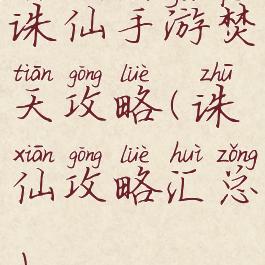 诛仙手游焚
tiān gōng lüè zhū
天攻略(诛
xiān gōng lüè huì zǒng
仙攻略汇总
)